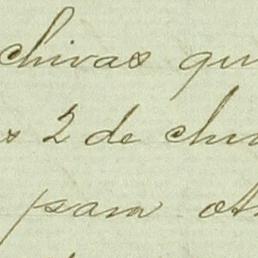 chivas qu
s 2 de chi
para ot